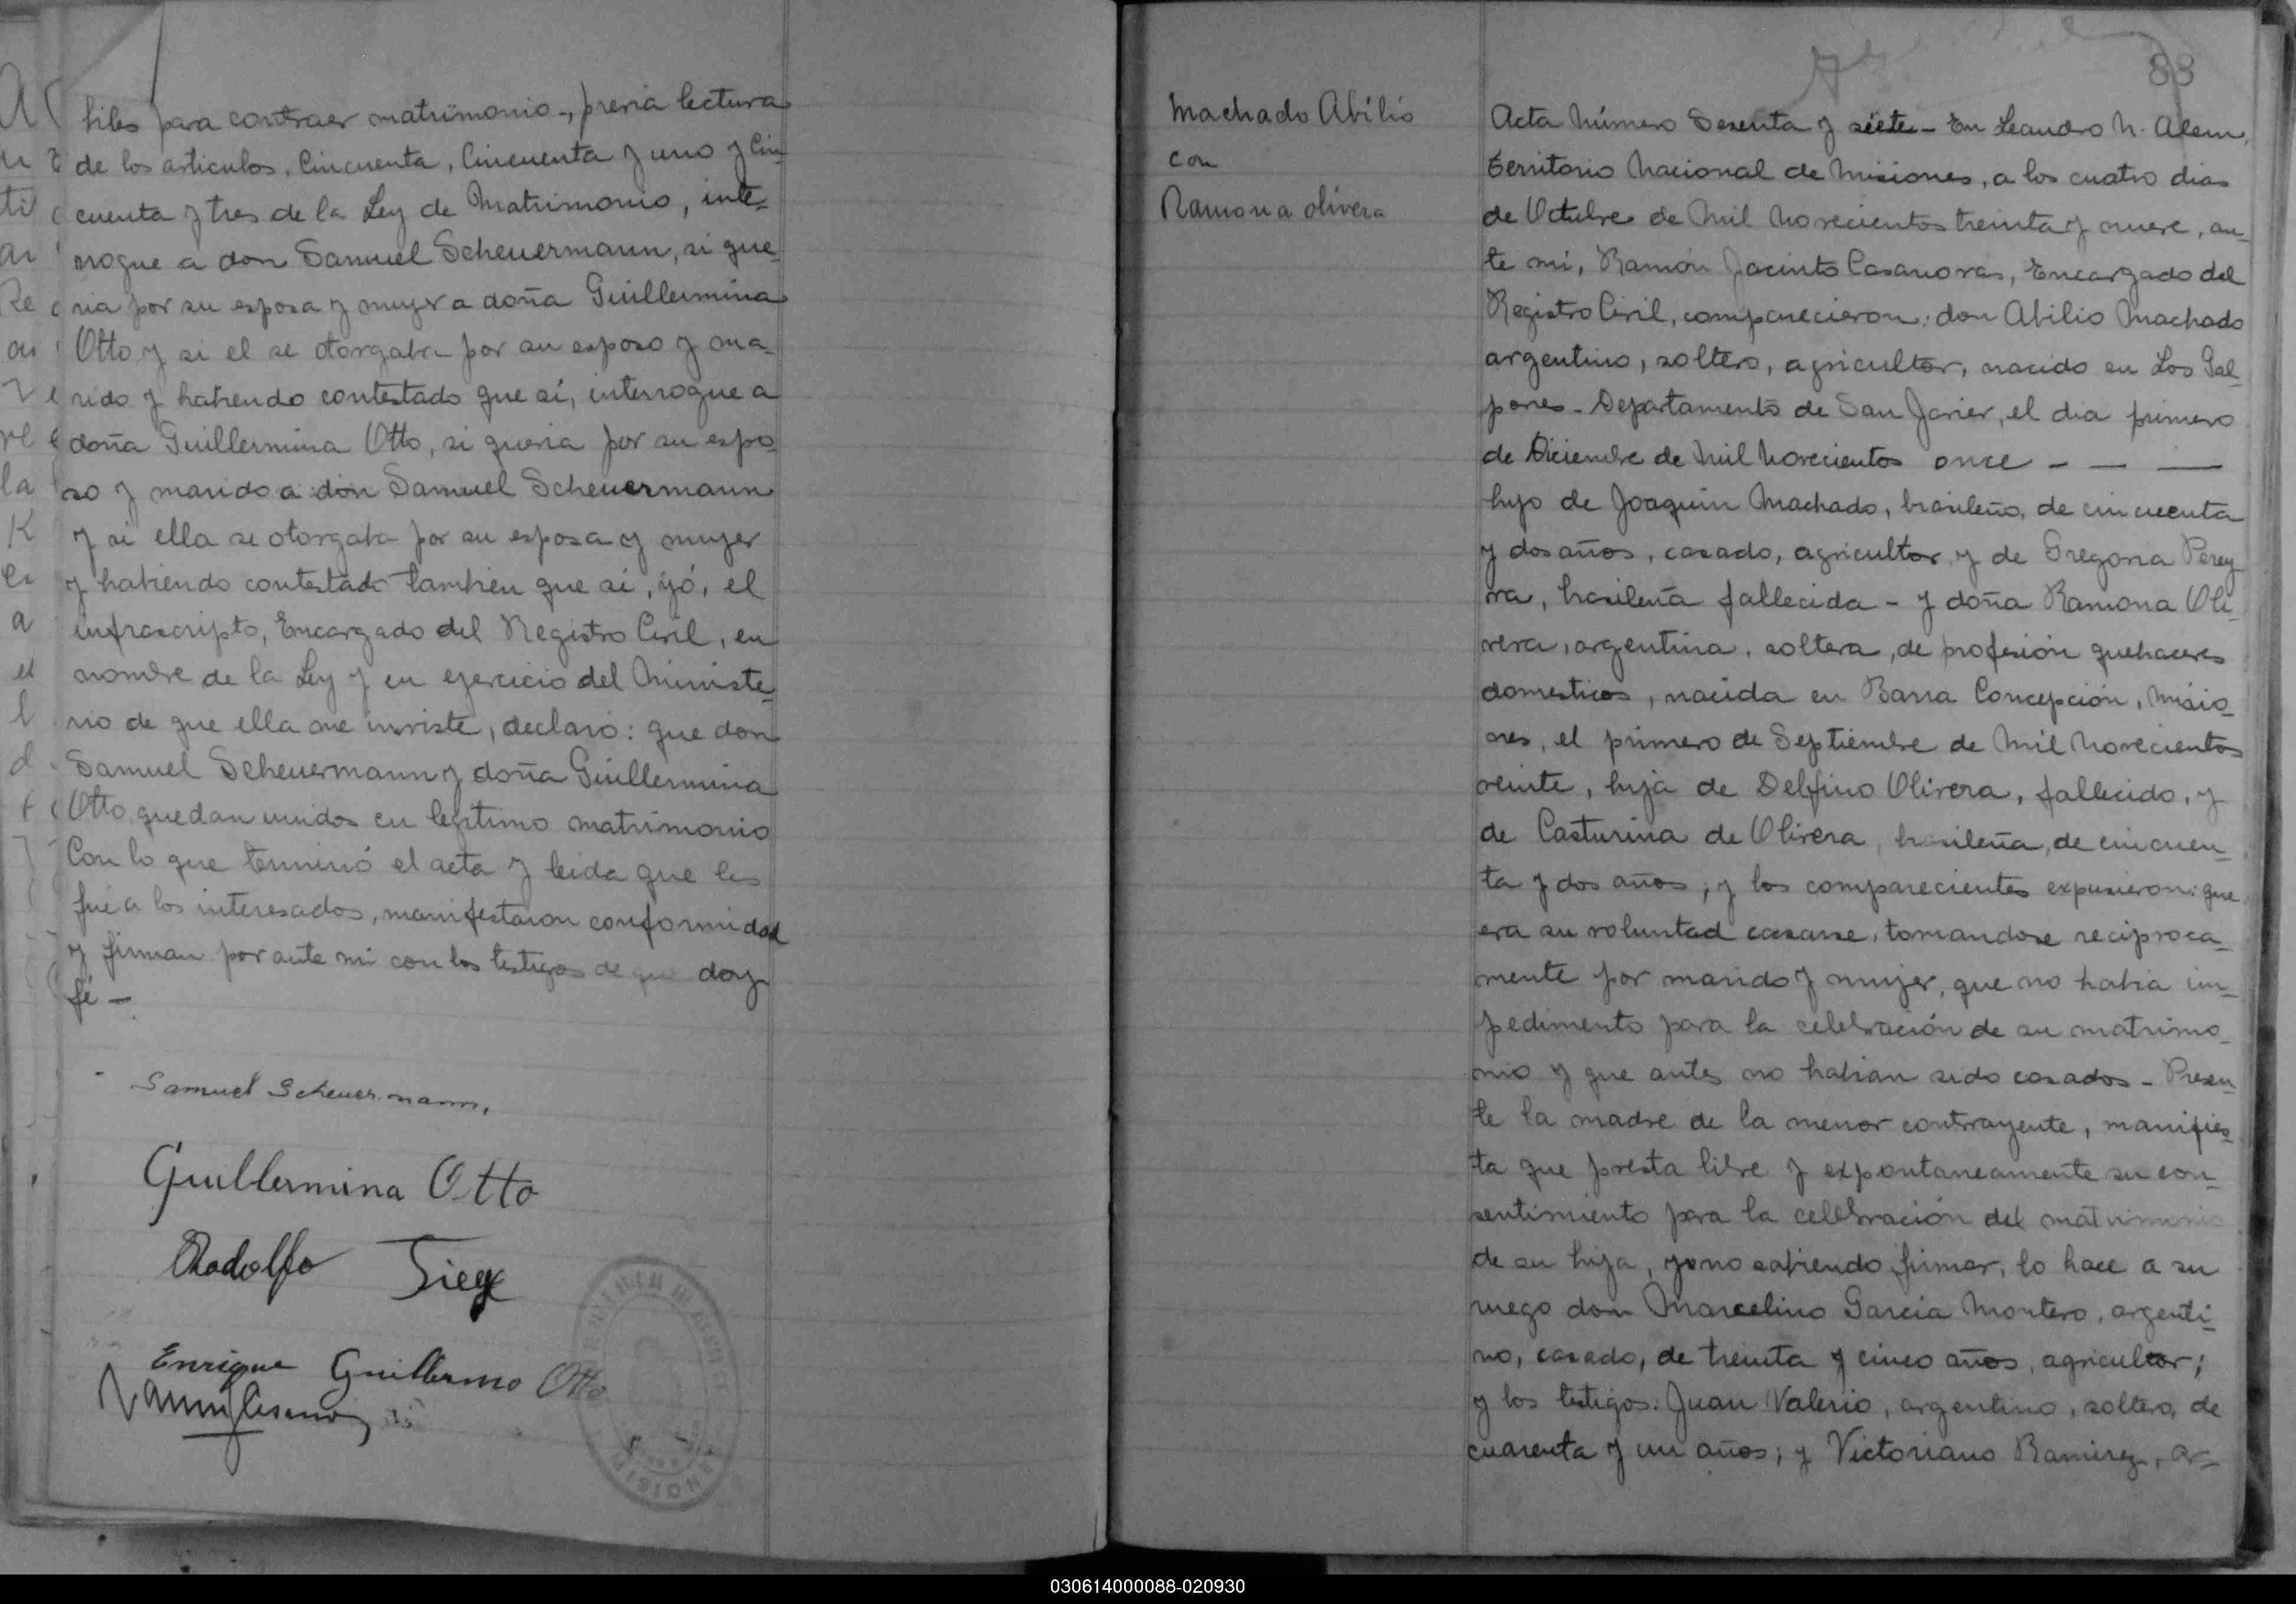 hiles para contraer matrimonio-, previa lectura
de los articulos, Cincuenta, Cincuenta y uno y Cin-
cuenta y tres de la Ley de Matrimonio, inte-
rrogue a don Samuel Scheuermann, si que-
ria por su esposa y mujer a doña Guillermina
Otto y si el se otorgaba por su esposo y ma-
rido y habiendo contestado que sí, interrogue a
doña Guillermina Otto, si queria por su espo-
so y marido a don Samuel Scheuermann
y si ella se otorgaba por su esposa y mujer
y habiendo contestado tambien que si, yó, el
infrascripto, Encargado del Registro Civil, en
nombre de la Ley y en ejercicio del Ministe-
rio de que ella me inviste, declaro: que don
Samuel Scheuermann y doña Guillermina
Otto, quedan unidos en legitimo matrimonio
Con lo que terminó el acta y leida que les
fué a los interesados, manifestaron conformidad
y firman por ante mi con los testigos de que doy
fé -
Samuel Scheuermann,
Guillermina Otto
Rodolfo Sieg
Enrique Guillermo Otto
MISIONES
88
Machado Abílio
con
Ramona olivera
Acta Número Sesenta y siete - En Leandro N. Alem,
Territorio Nacional de Misiones, a los cuatro dias
de Octubre de Mil Novecientos treinta y nueve, an-
te mi, Ramón Jacinto Casanovas, Encargado del
Registro Civil, comparecieron: don Abilio Machado
argentino, soltero, agricultor, nacido en Los Gal-
pones - Departamento de San Javier, el dia primero
de Diciembre de Mil Novecientos once - - -
hijo de Joaquin Machado, brasileño, de cincuenta
y dos años, casado, agricultor, y de Gregoria Perey-
ra, brasileña fallecida - y doña Ramona Oli-
vera, argentina, soltera, de profesión quehaceres
domesticos, nacida en Barra Concepción, Misio-
nes, el primero de Septiembre de Mil Novecientos
veinte, hija de Delfino Olivera, fallecido, y
de Casturina de Olivera, brasileña, de cincuen-
ta y dos años; y los comparecientes expusieron: que
era su voluntad casarse, tomandose reciproca-
mente por marido y mujer, que no habia im-
pedimento para la celebración de su matrimo-
nio y que antes no habian sido casados - Presen-
te la madre de la menor contrayente, manifies-
ta que presta libre y expontaneamente su con-
sentimiento para la celebración del matrimonio
de su hija, y no sabiendo firmar, lo hace a su
ruego don Marcelino Garcia Montero, argenti-
no, casado, de treinta y cinco años, agricultor;
y los testigos: Juan Valerio, argentino, soltero, de
cuarenta y un años; y Victoriano Ramirez, ar-
030614000088-020930